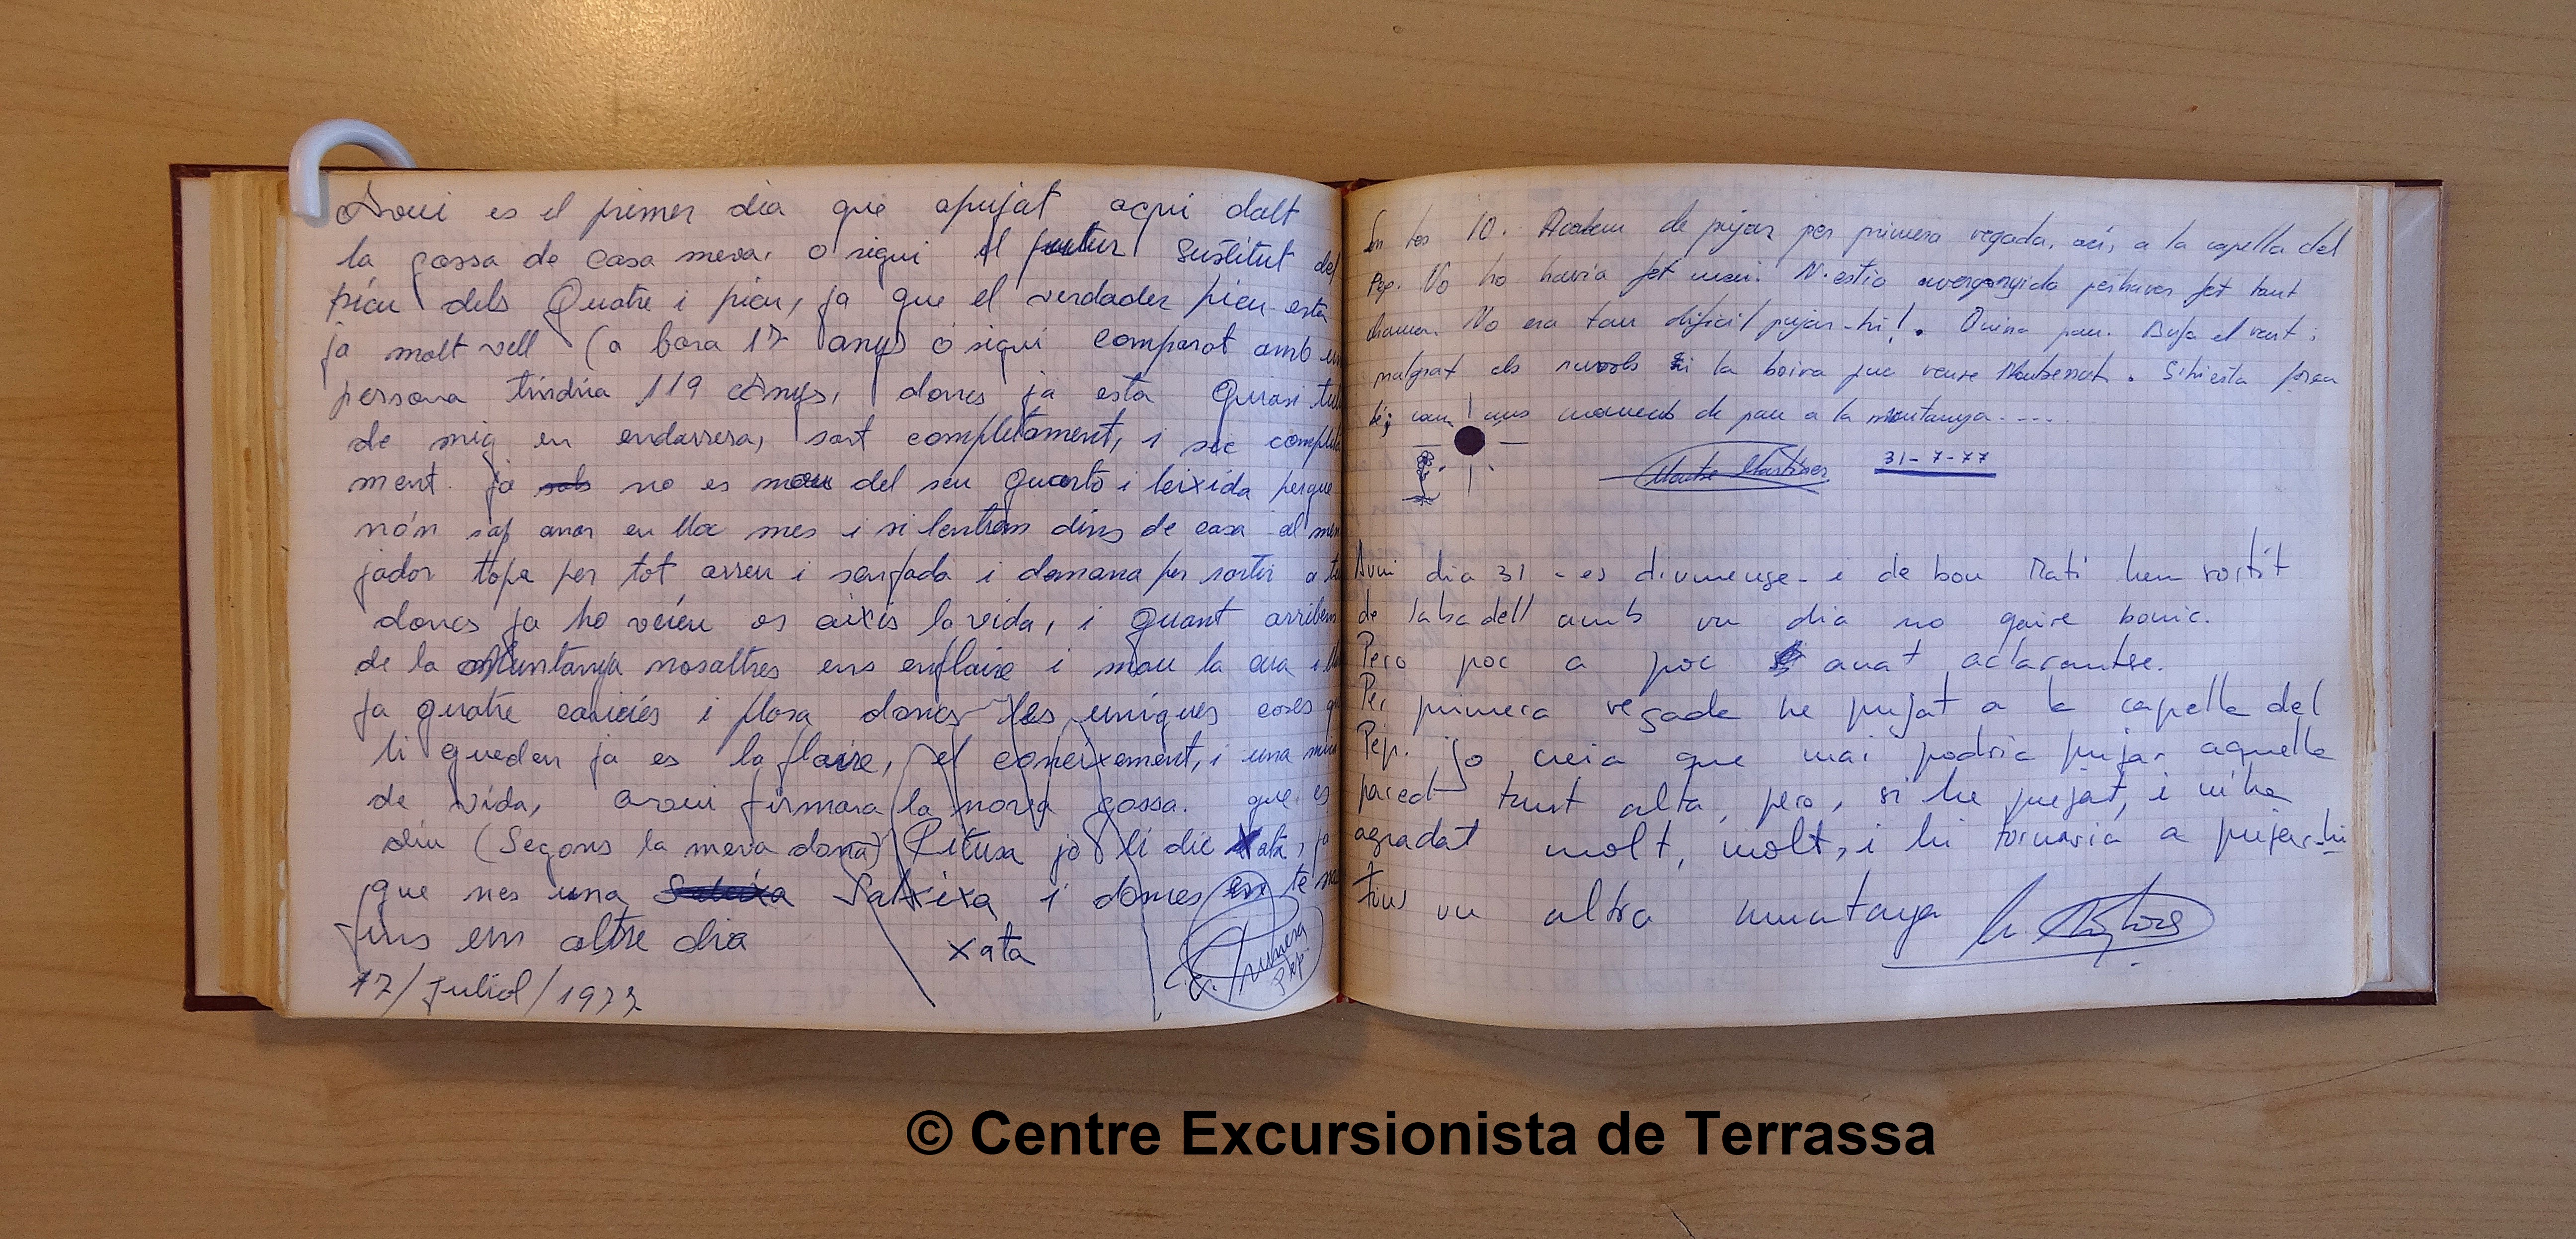 Avui es el primer dia que apujat aqui dalt
la gossa de casa meva, o sigui el futur sustitut del
picu dels Quatre i picu, ja que el verdader picu esta
ja molt vell (a bora 17 anys o sigui comparat amb un
persona tindria 119 anys, doncs ja esta quasi tul
de mig en endarrera, sort completament, i sec comple
ment. ja no es mou del seu quarto i leixida perque
nón sap anar en lloc mes i si lentrem dins de casa al men
jador topa per tot arreu i senfada i demana per sortir a
doncs ja ho veieu es aixis la vida, i quant arribem
de la Muntanya nosaltres ens enflaire i mou la cua i
fa quatre caricies i plora doncs les uniques coses q
li queden ja es la flaire, el coneixement, i una mic
de vida, avui firmara la nova gossa. que es
diu (Segons la meva dona) Pitusa jo li dic Xata, ja
que nes una Salxixa i doncs en te
fins em altre dia xata
17/juliol/1977 Pep
Son les 10. Acabem de pujar per primera vegada, aci, a la capella del
Pep. No ho havia fet mai. N'estic avergonyida perhaver fet tant
No era tan dificil pujar-hi!. Quina pau. Bufa el vent i
malgrat els nuvols i la boira puc veure Montserrat. S'hi esta
bé; uns moments de pau a la muntanya....
Montse Martinez 31-7-77
Avui dia 31 - es diumenge - i de bon Mati hem sortit
de Sabadell amb un dia no gaire bonic.
Pero poc a poc anat aclarantse.
Per primera vegada he pujat a la capella del
Pep. jo creia que mai podria pujar aquella
paret tant alta, pero, si he pujat, i m'ha
agradat molt, molt, i hi tornaria a pujar-hi
fins un altra muntanya
© Centre Excursionista de Terrassa